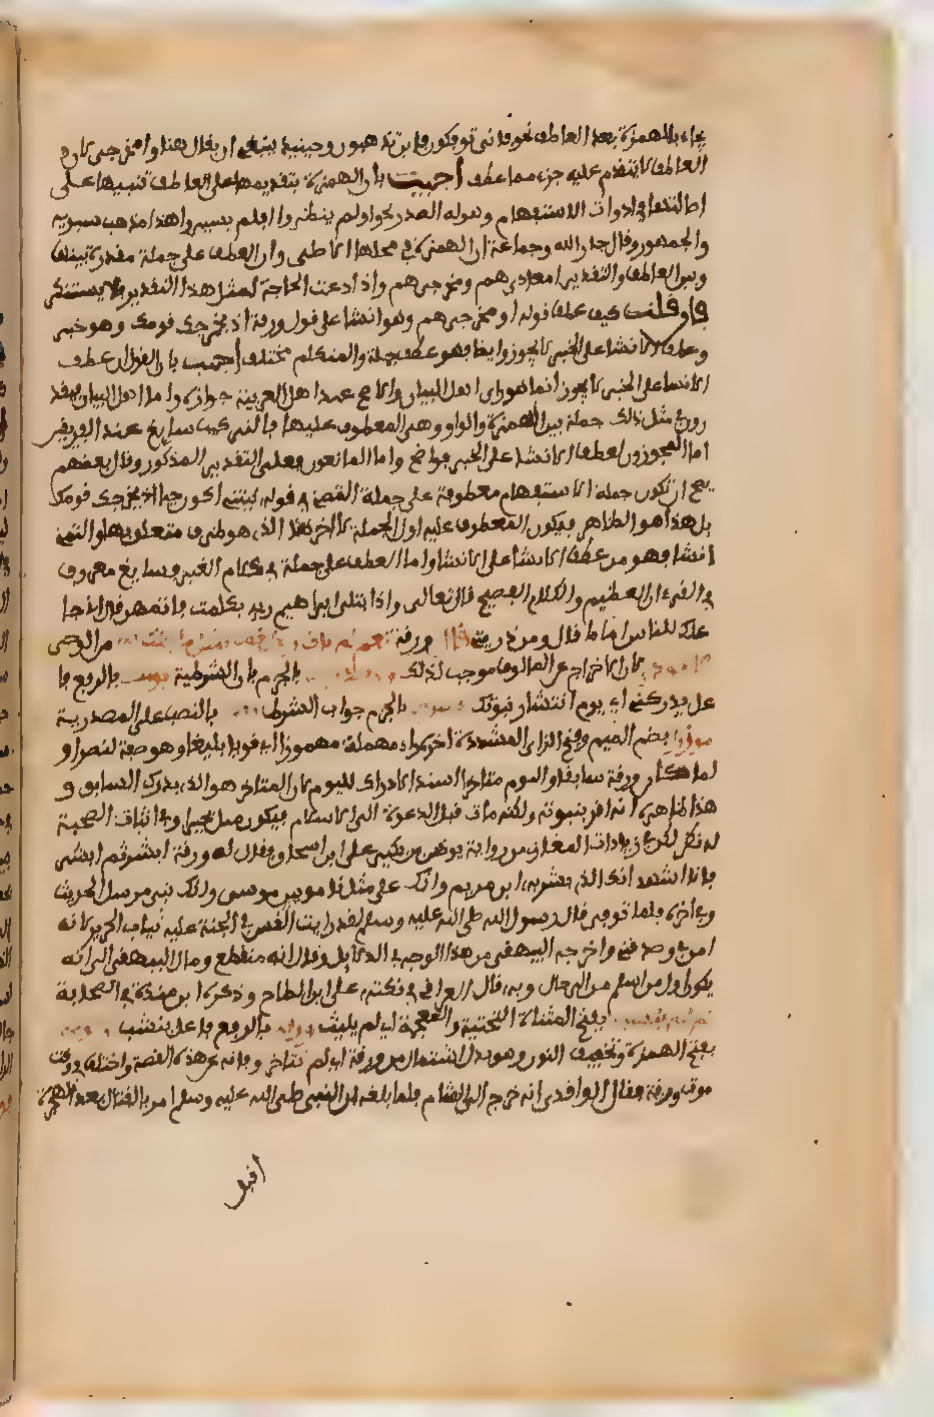 يجاء بالهمزة بعد العاطف نحو فأنى توفكون فاين تذهبون وحينيذ ينبغي ان يقال هنا وامخرجي لان
العاطف لا يتقدم عليه جزء مما عطف اجيب بان الهمزة بتقديمها على العاطف تنبيها على
اصالتها في ادوات الاستفهام وهو له الصدر نحو اولم ينظروا افلم يسيروا هذا مذهب سيبويه
والجمهور وقال جار الله وجماعة ان الهمزة في محلها الاصلي وان العطف على جملة مقدرة بينها
وبين العاطف والتقدير امعادي هم ومخرجي هم واذا دعت الحاجة لمثل هذا التقدير فلا يستنكر
فان قلت كيف عطف قوله اومخرجي هم وهو انشا على قول ورقة اذ يخرجك قومك وهو خبر
وعطف الانشا على الخبر لا يجوز وايضا فهو عطف جملة والمتكلم مختلف اجيب بان القول ان عطف
الانشا على الخبر لا يجوز انما هو راي اهل البيان والاصح عند اهل العربية جوازه واما اهل البيان فيقد
رون في مثل ذلك جملة بين الهمزة والواو وهي المعطوف عليها فالتركيب سايغ عند الفريقين
اما المجوزون لعطف الانشا على الخبر فواضح واما المانعون فعلى التقدير المذكور وقال بعضهم
يصح ان تكون جملة الاستفهام معطوفة على جملة التمني في قوله ليتني اكون حيا اذ يخرجك قومك
بل هذا هو الظاهر فيكون المعطوف عليه اول الجملة لا اخرها الذي هو ظرف متعلق بها والتمني
انشا فهو من عطف الانشا على الانشا واما العطف على جملة في كلام الغير فسايغ معروف
في القرءان العظيم والكلام الفصيح قال تعالى واذا بتلى ابراهيم ربه بكلمت فاتمهن قال اني جا
علك للناس اماما قال ومن ذريتي قال ورقة نعم لم يات رجل قط بمثل ما جئت به من الوحي
الا عودي لان الاخراج عن المالوف موجب لذلك وان يدركني بالجزم بان الشرطية يومك بالرفع فا
عل يدركني اي يوم انتشار نبوتك انصرك بالجزم جواب الشرط نصرا بالنصب على المصدرية
موزرا بضم الميم وفتح الزاي المشددة اخره راء مهملة مهموزا اي قويا بليغا وهو صفة لنصرا و
لما كان ورقة سابقا واليوم متاخرا اسند الادراك لليوم لان المتاخر هو الذي يدرك السابق و
هذا ظاهره انه اقر بنبوته ولكنه مات قبل الدعوة الى الاسلام فيكون مثل بحيرا وفي اثبات الصحبة
له نظر لكن في زيادات المغازي من رواية يونس بن بكير عن ابن اسحاق فقال له ورقة ابشر ثم ابشر
فانا اشهد انك الذي بشر به ابن مريم وانك على مثل ناموس موسى وانك نبي مرسل الحديث
وفي اخره فلما توفي قال رسول الله صلى الله عليه وسلم لقد رايت القس في الجنة عليه ثياب الحرير لانه
امن بي وصدقني واخرجه البيهقي من هذا الوجه في الدلايل وقال انه منقطع ومال البلقيني الى انه
يكون اول من اسلم من الرجال وبه قال العراقي في نكته على ابن الصلاح وذكره ابن منده في الصحابة
ثم لم ينشب بفتح المثناة التحتية والمعجمة اي لم يلبث ورقة بالرفع فاعل ينشب ان توفي
بفتح الهمزة وتخفيف النون وهو بدل اشتمال من ورقة اي لم تتاخر وفاته عن هذه القصة واختلف في وقت
موت ورقة فقال الواقدي انه خرج الى الشام فلما بلغه ان النبي صلى الله عليه وسلم امر بالقتال بعد الهجرة
اقبل